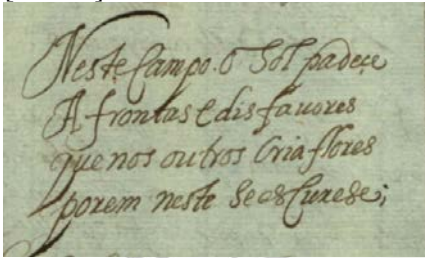 Neste Campo. o Sol padeçe
A frontas e disfauores
que nos outros Cria flores
porem neste se esCurese;